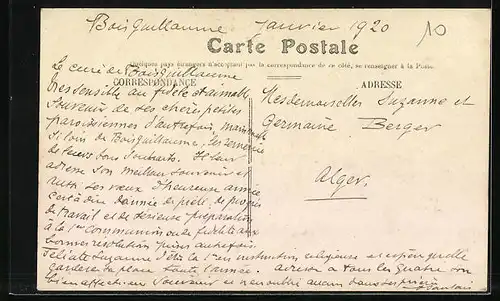 Boisguillaume Janvier 1920
10
Carte Postale
Quelques pays étrangers n'acceptant pas la correspondance de ce côté, se renseigner à la Poste.
CORRESPONDANCE
ADRESSE
Le curé de Boisguillaume
très sensible au fidèle et aimable
souvenir de ses chères petites
paroissiennes d'autrefois, maintenant
si loin de Boisguillaume, les remercie
de leurs bons souhaits. Il leur
adresse son meilleur souvenir et
aussi ses vœux d'heureuse année
c'est à dire d'année de piété, de progrès
de travail et de sérieuse préparation
à la 1ère Communion ou de fidélité aux
bonnes résolutions prises autrefois.
Félicite Suzanne d'être la 1ère en instruction religieuse et espère qu'elle
gardera sa place toute l'année. Adresse à tous les quatre son
bien affectueux souvenir
Mesdemoiselles Suzanne et
Germaine Berger
Alger.